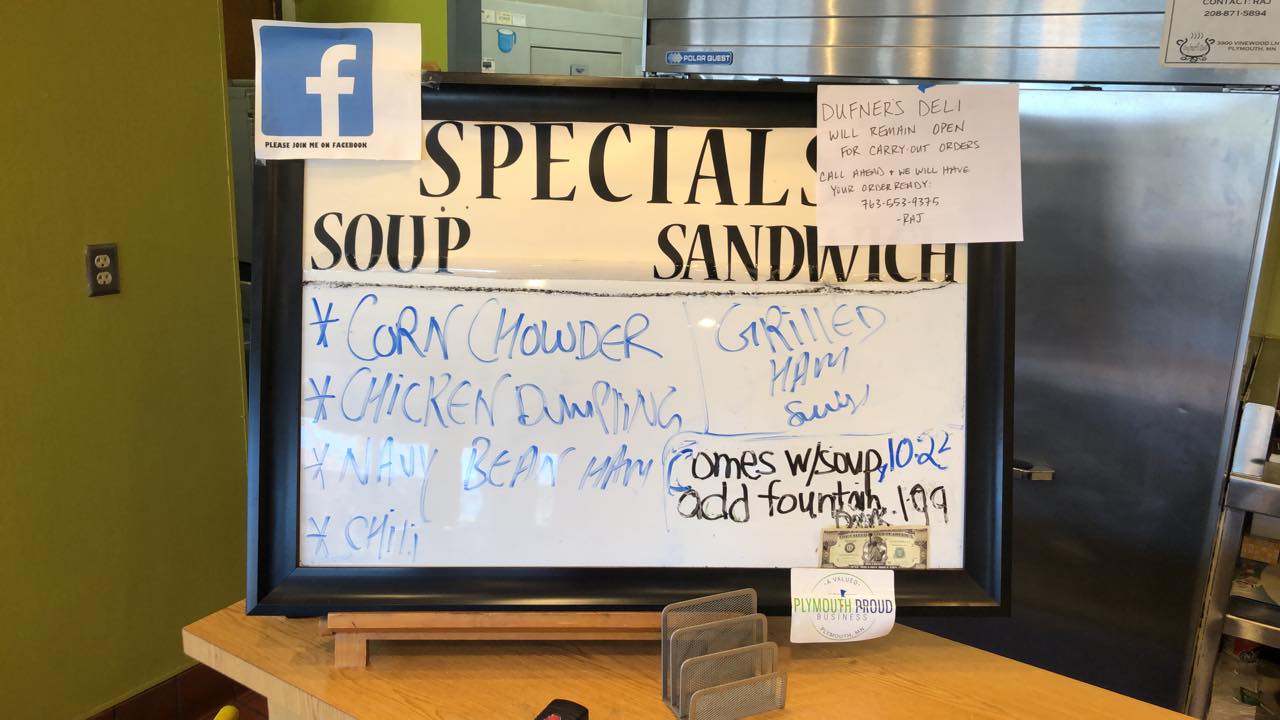 f
PLEASE JOIN ME ON FACEBOOK
POLAR QUEST
CONTACT: RAJ
208-871-5894
3900 VINEWOOD LN
PLYMOUTH, MN
DUFNER'S DELI
WILL REMAIN OPEN
FOR CARRY-OUT ORDERS
CALL AHEAD + WE WILL HAVE
YOUR ORDER READY:
763-553-9375
-RAJ
SPECIALS
SOUP SANDWICH
* CORN CHOWDER
* CHICKEN DUMPLING
* NAVY BEAN HAM
* CHILI
GRILLED
HAM
Swiss
Comes w/soup, 10.22
add fountain 1.99
Drink
A VALUED
PLYMOUTH PROUD
BUSINESS
PLYMOUTH, MN